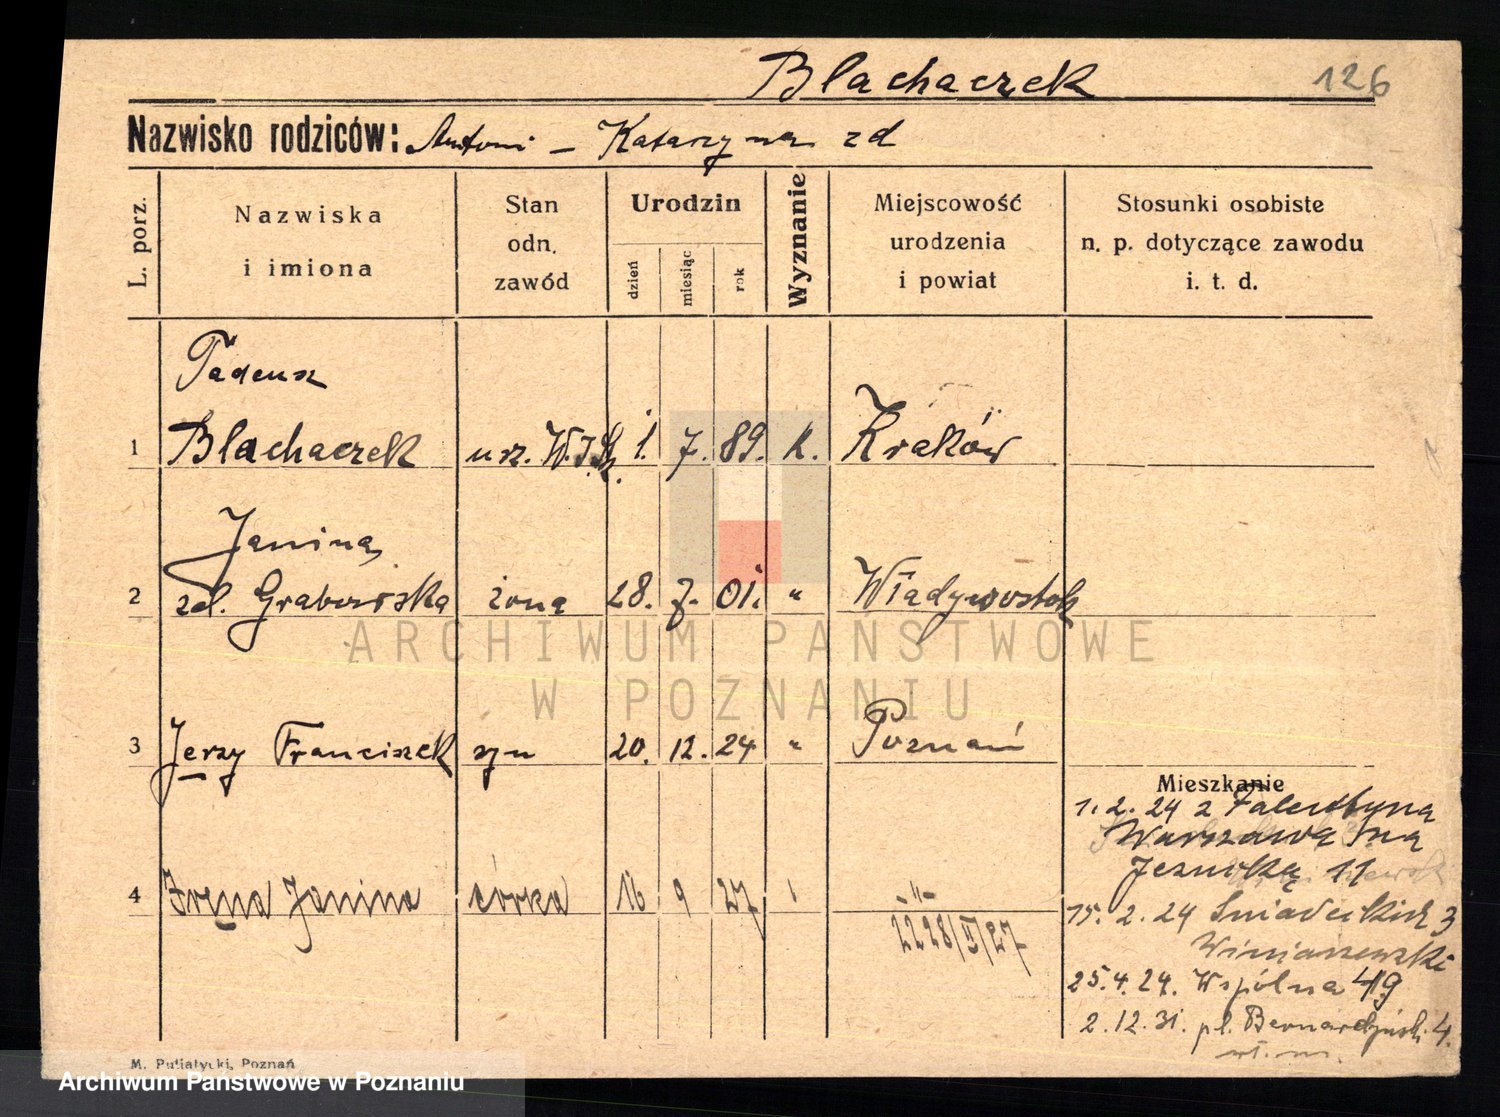 Blachaczek 126
Nazwisko rodziców: Antoni – Katarzyna zd
L. porz.
Nazwiska
i imiona
Stan
odn.
zawód
Urodzin
dzień
miesiąc
rok
Wyznanie
Miejscowość
urodzenia
i powiat
Stosunki osobiste
n. p. dotyczące zawodu
i. t. d.
Tadeusz
1 Blachaczek urz. 1. 7. 89. k. Kraków
Janina
2 zd. Grabowska żona 28. 7. 01. " Władywostok
3 Jerzy Franciszek syn 20. 12. 24 " Poznań
4 Irena Janina córka 16 9 27 ı -"-
Mieszkanie
1. 2. 24 z
Warszawa na
Jezuicką 11
15. 2. 24 Śniadeckich 3
25. 4. 24. Wspólna 49
2. 12. 31. pl. Bernardyńsk. 4.
M. Putiatycki, Poznań
ARCHIWUM PAŃSTWOWE
W POZNANIU
Archiwum Państwowe w Poznaniu